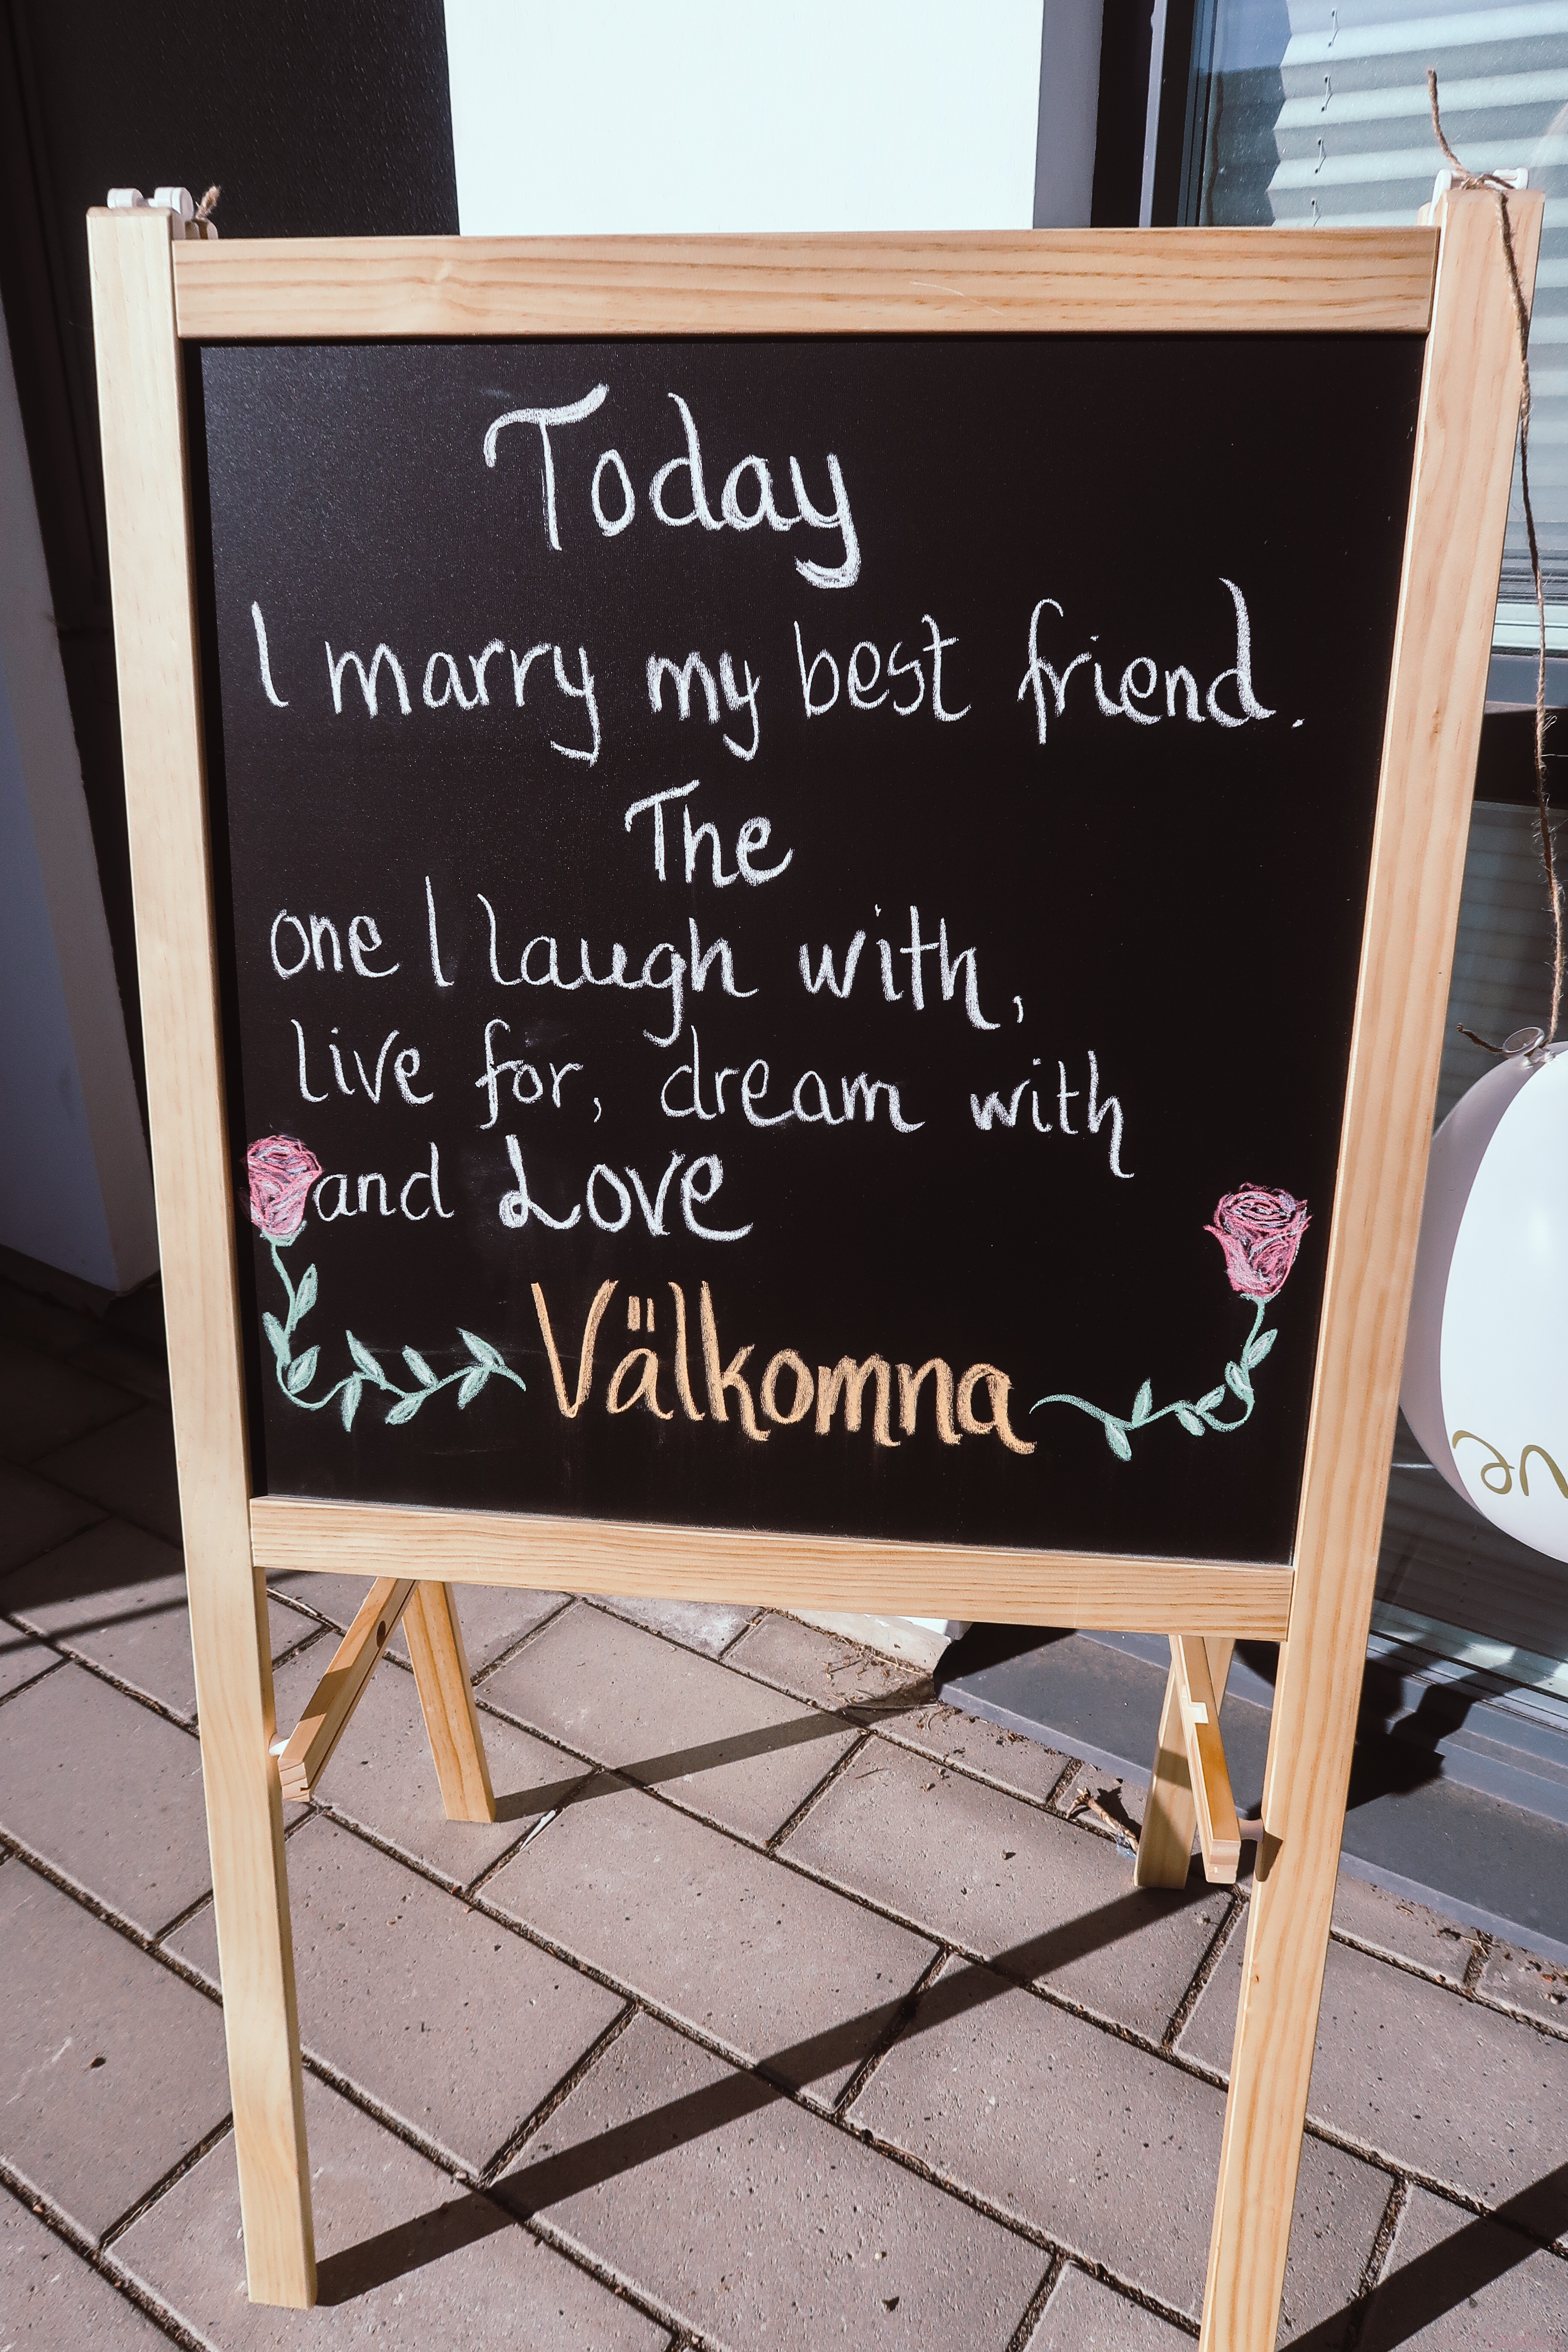 Today
I marry my best friend.
The
one I laugh with,
live for, dream with
and Love
Välkomna